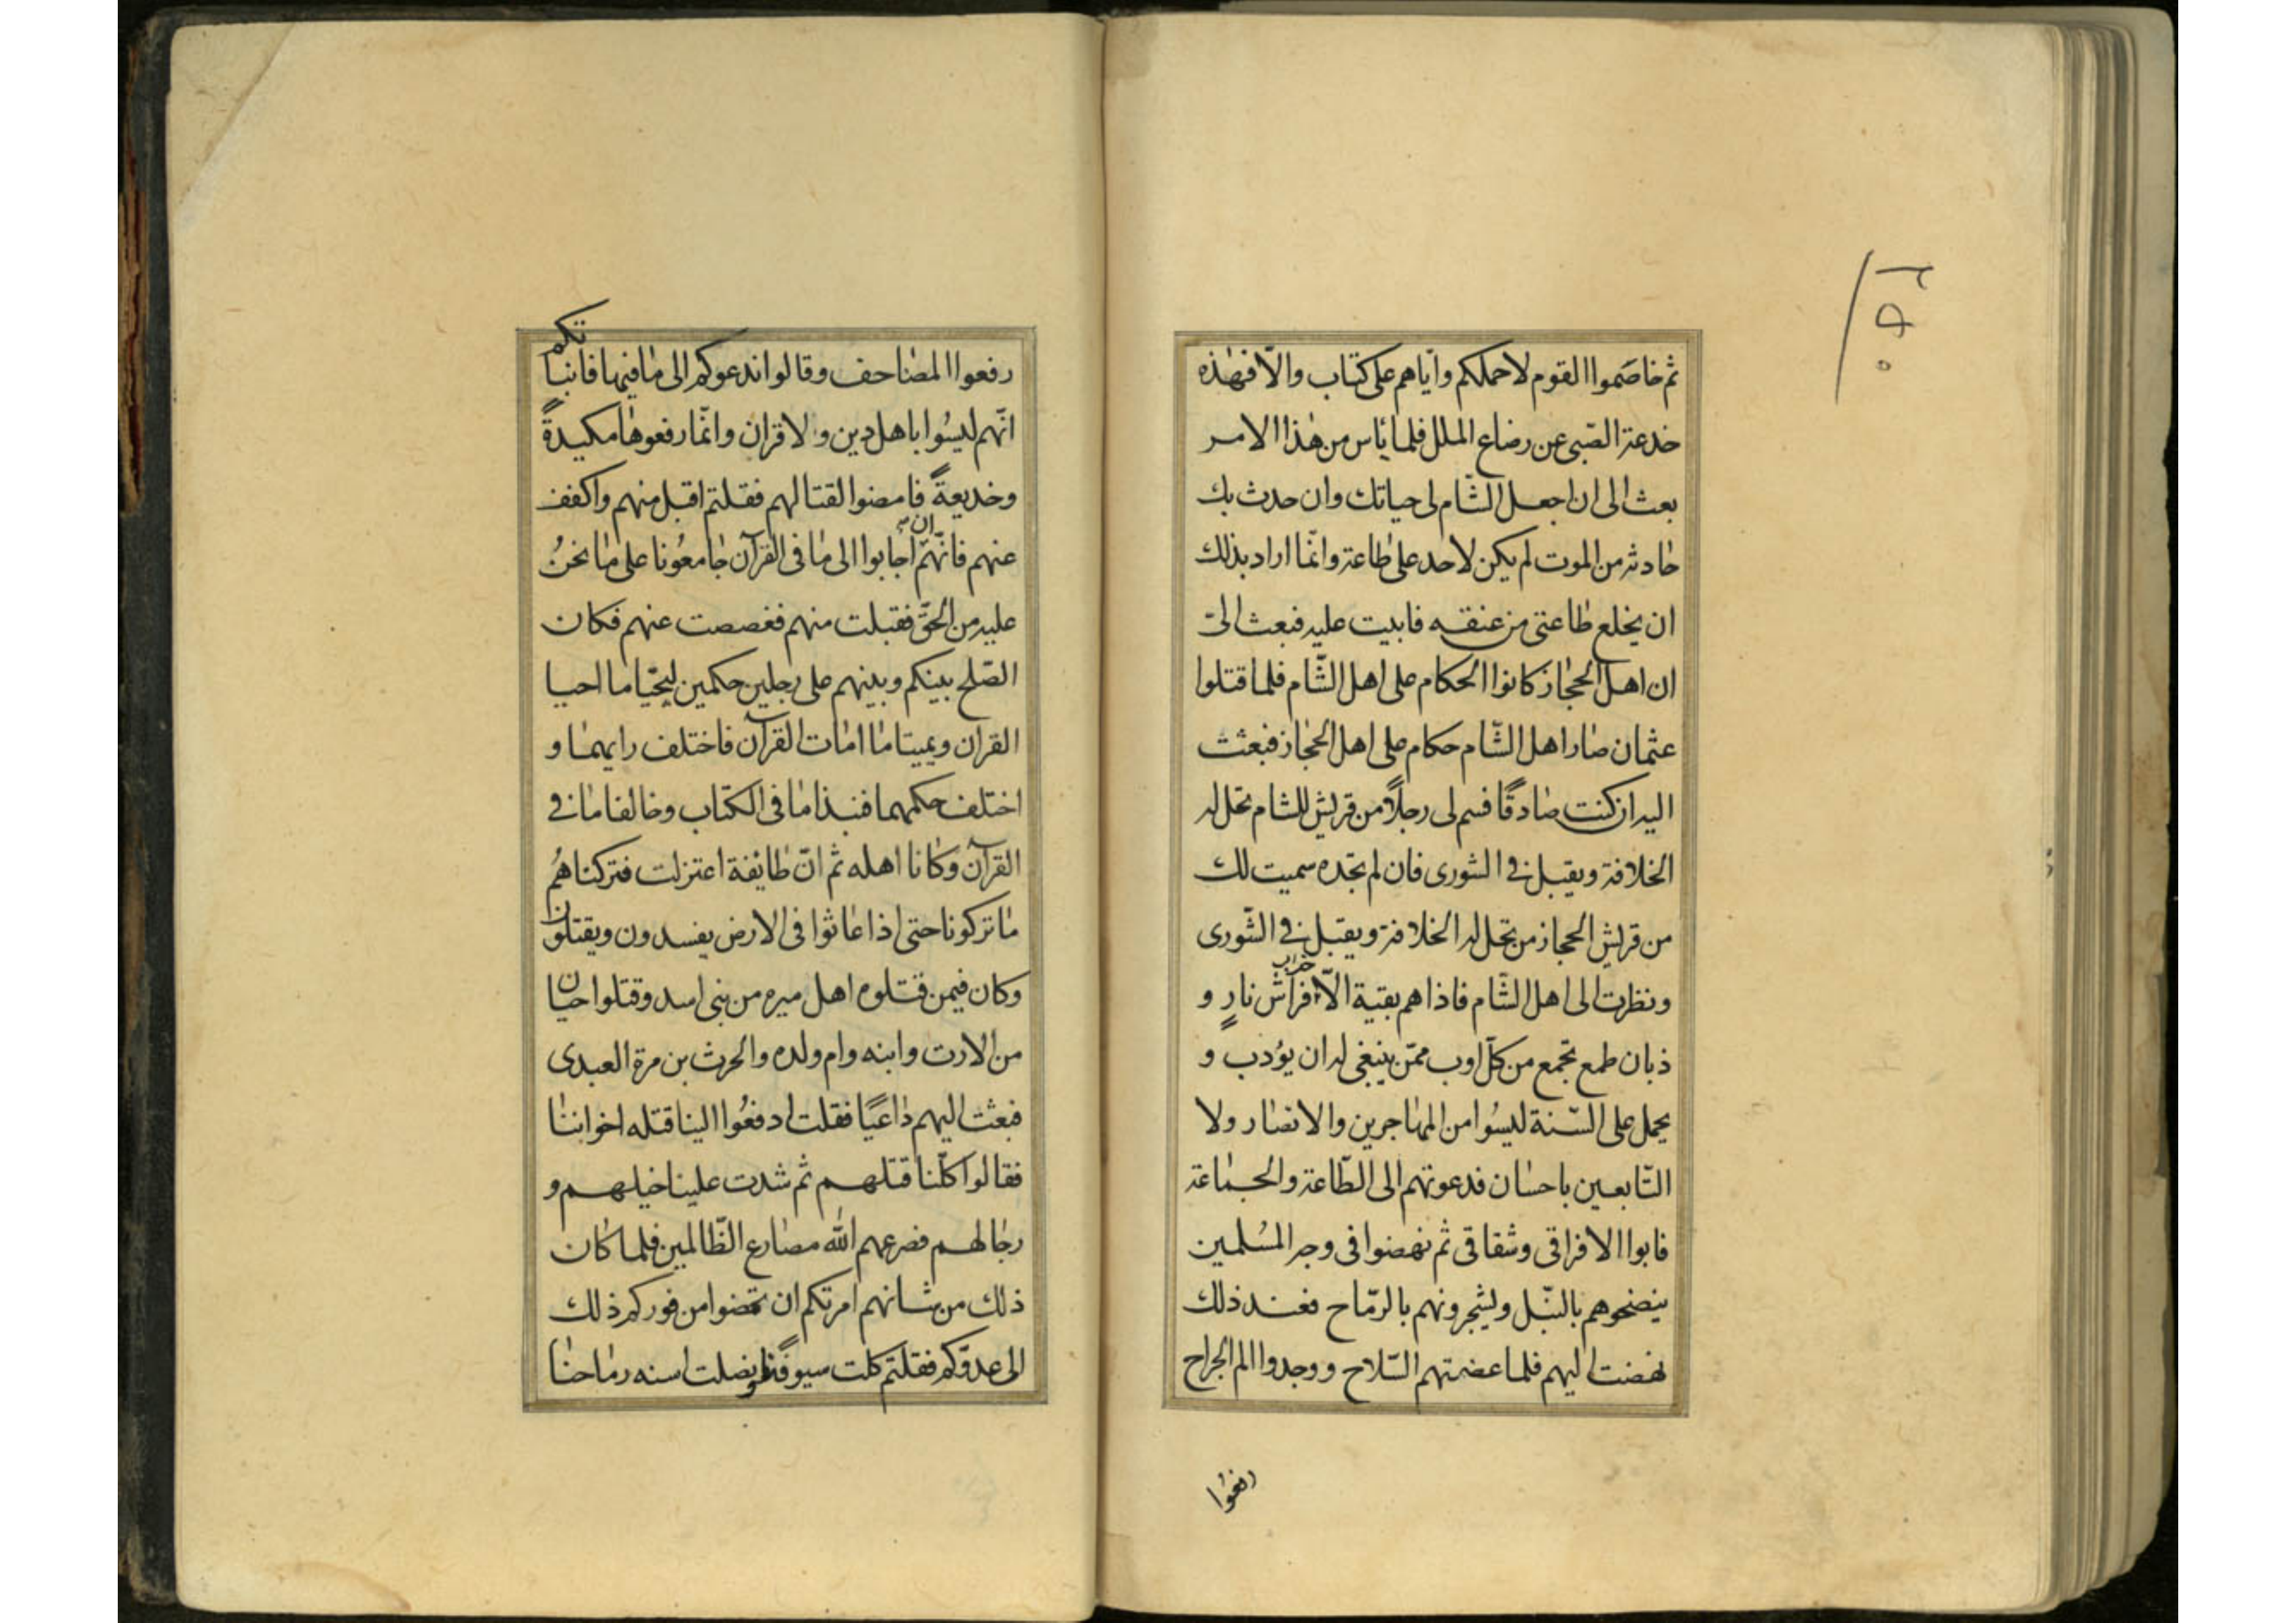 ثم خاصموا القوم لاحملكم واياهم على كتاب والّا فهذه
خدعة الصّبى عن رضاع الملل فلما يأس من هذا الامر
بعث الى ان اجعل الشّام لى حياتك وان حدث بك
حادثة من الموت لم يكن لاحد على طاعة وانّما اراد بذلك
ان يخلع طاعتى من عنقه فابيت عليه فبعث الىّ
ان اهل الحجاز كانوا الحكام على اهل الشّام فلما قتلوا
عثمان صار اهل الشّام حكام على اهل الحجاز فبعثت
اليه ان كنت صادقًا فسم لى رجلًا من قريش للشام تحل له
الخلافة ويقبل فى الشورى فان لم تجده سميت لك
من قريش الحجاز من تحل له الخلافة ويقبل فى الشّورى
ونظرت الى اهل الشّام فاذا هم بقية الّا فراش نارٍ و
ذبان طمع تجمع من كلّ اوب ممّن ينبغى له ان يؤدب و
يحمل على السّنة ليسُوا من المهاجرين والانصار ولا
التّابعين باحسان فدعوتهم الى الطّاعة والجماعة
فابوا الا فراقى وشقاقى ثم نهضوا فى وجه المسُلمين
ينضحوهم بالنّبل ويشجرونهم بالرّماح فعند ذلك
نهضت اليهم فلما عضتهم السّلاح ووجدوا الم الجراح
رفعوا
رفعوا المصاحف وقالوا ندعوكم الى ما فيها فانبأتكم
انّهم ليسُوا باهل دين ولا قران وانّما رفعوها مكيدةً
وخديعةً فامضوا لقتالهم فقلتم اقبل منهم واكفف
عنهم فانّهم ان اجابوا الى ما فى القرآن جامعُونا على ما نحنُ
عليه من الحقّ فقبلت منهم فغصصت عنهم فكان
الصّلح بينكم وبينهم على رجلين حكمين ليحيّا ما احيا
القران ويميتا ما امات القرآن فاختلف رايهما و
اختلف حكمهما فنبذا ما فى الكتاب وخالفا ما فى
القرآن وكانا اهله ثم انّ طايفة اعتزلت فتركناهُم
ما تركونا حتى اذا عاثوا فى الارض يفسدون ويقتلون
وكان فيمن قتلوه اهل ميره من بنى اسد وقتلوا حيان
من الارت وابنه وام ولده والحرث بن مرة العبدى
فبعثت اليهم داعيًا فقلت ادفعُوا الينا قتله اخواننا
فقالوا كلّنا قتلهم ثم شدت علينا خيلهم و
رجالهم فصرعهم الله مصارع الظّالمين فلما كان
ذلك من شانهم امرتكم ان تمضوا من فوركم ذلك
الى عدوّكم فقلتم كلت سيوفنا ونصلت اسنه رماحنا